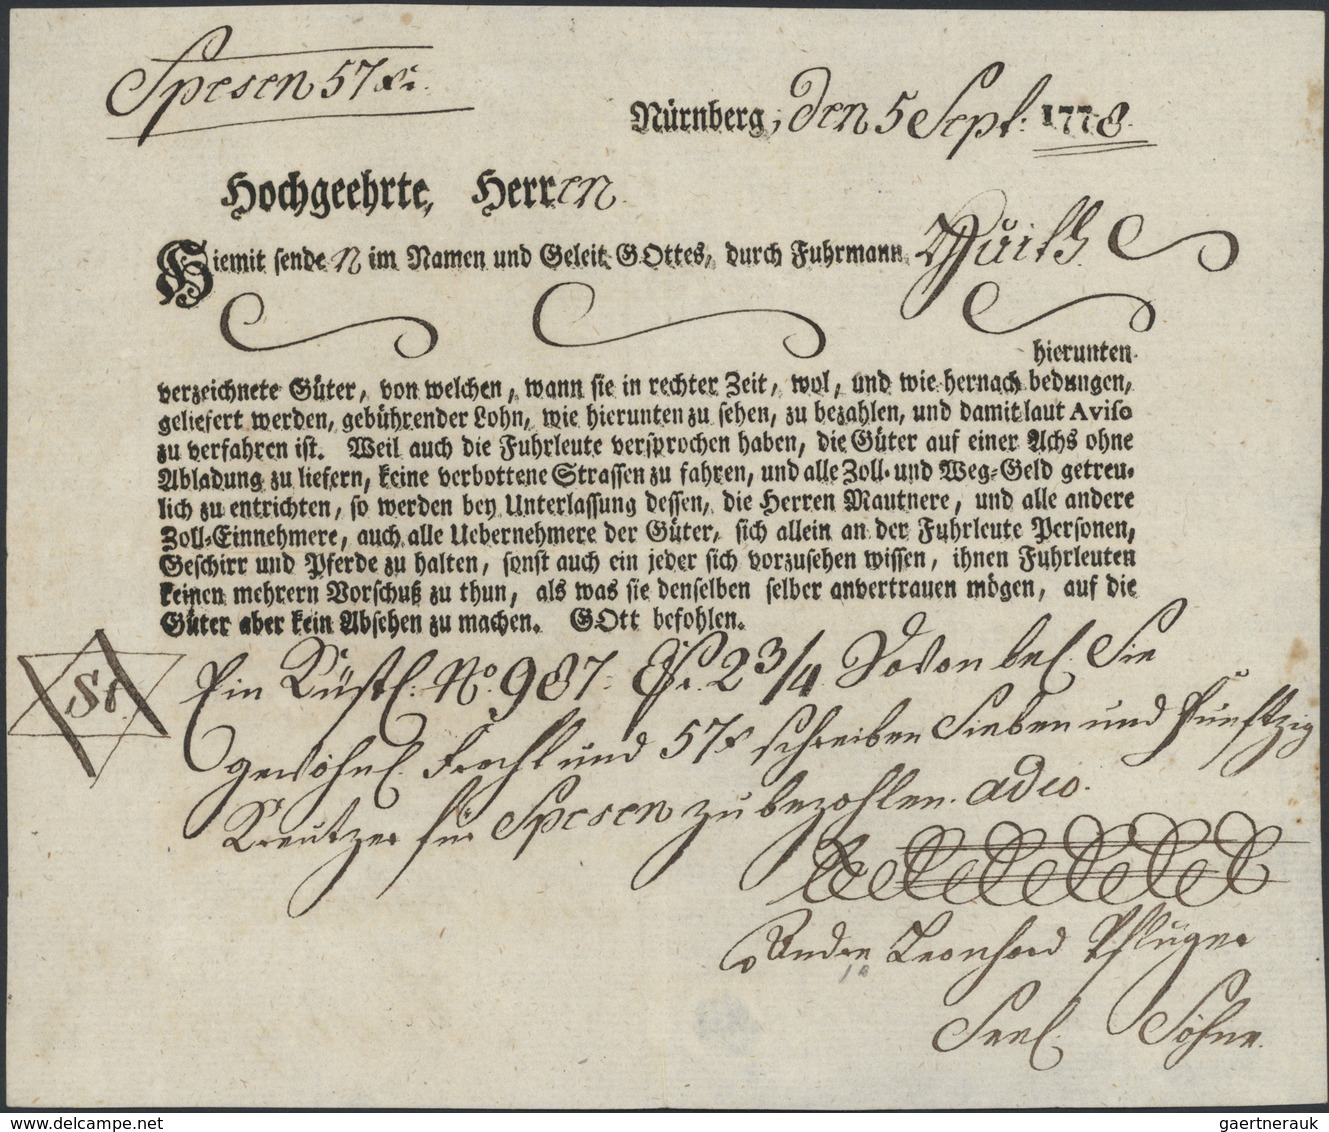 Spesen 57 xr.
Nürnberg, den 5 Sept: 1778.
Hochgeehrte, Herren
Hiemit sende n im Namen und Geleit GOttes, durch Fuhrmann
hierunten
verzeichnete Güter, von welchen, wann sie in rechter Zeit, wol, und wie hernach bedungen,
geliefert werden, gebührender Lohn, wie hierunten zu sehen, zu bezahlen, und damit laut Aviso
zu verfahren ist. Weil auch die Fuhrleute versprochen haben, die Güter auf einer Achs ohne
Abladung zu liefern, keine verbottene Strassen zu fahren, und alle Zoll- und Weg-Geld getreu-
lich zu entrichten, so werden bey Unterlassung dessen, die Herren Mautnere, und alle andere
Zoll-Einnehmere, auch alle Uebernehmere der Güter, sich allein an der Fuhrleute Personen,
Geschirr und Pferde zu halten, sonst auch ein jeder sich vorzusehen wissen, ihnen Fuhrleuten
keinen mehrern Vorschuß zu thun, als was sie denselben selber anvertrauen mögen, auf die
Güter aber kein Absehen zu machen. GOtt befohlen.
St
Ein Küstl. No. 987. 2 3/4 Davon bel. Sie
gewöhnl. Fracht und 57 x schreiben Sieben und Fünftzig
Kreutzer für Spesen zu bezahlen. adio.
Leonhard Pflüger
Seel. Söhne.
gaertnerauk